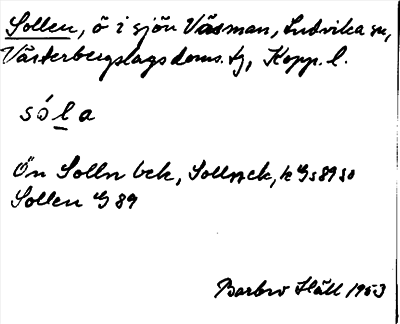 Sollen, ö i sjön Väsman, Ludvika sn,
Västerbergslags doms. tg, Kopp. l.
sóla
Ön Solln bek, Sollnek, k Gs 89 so
Sollen G 89
Barbro Häll 1953